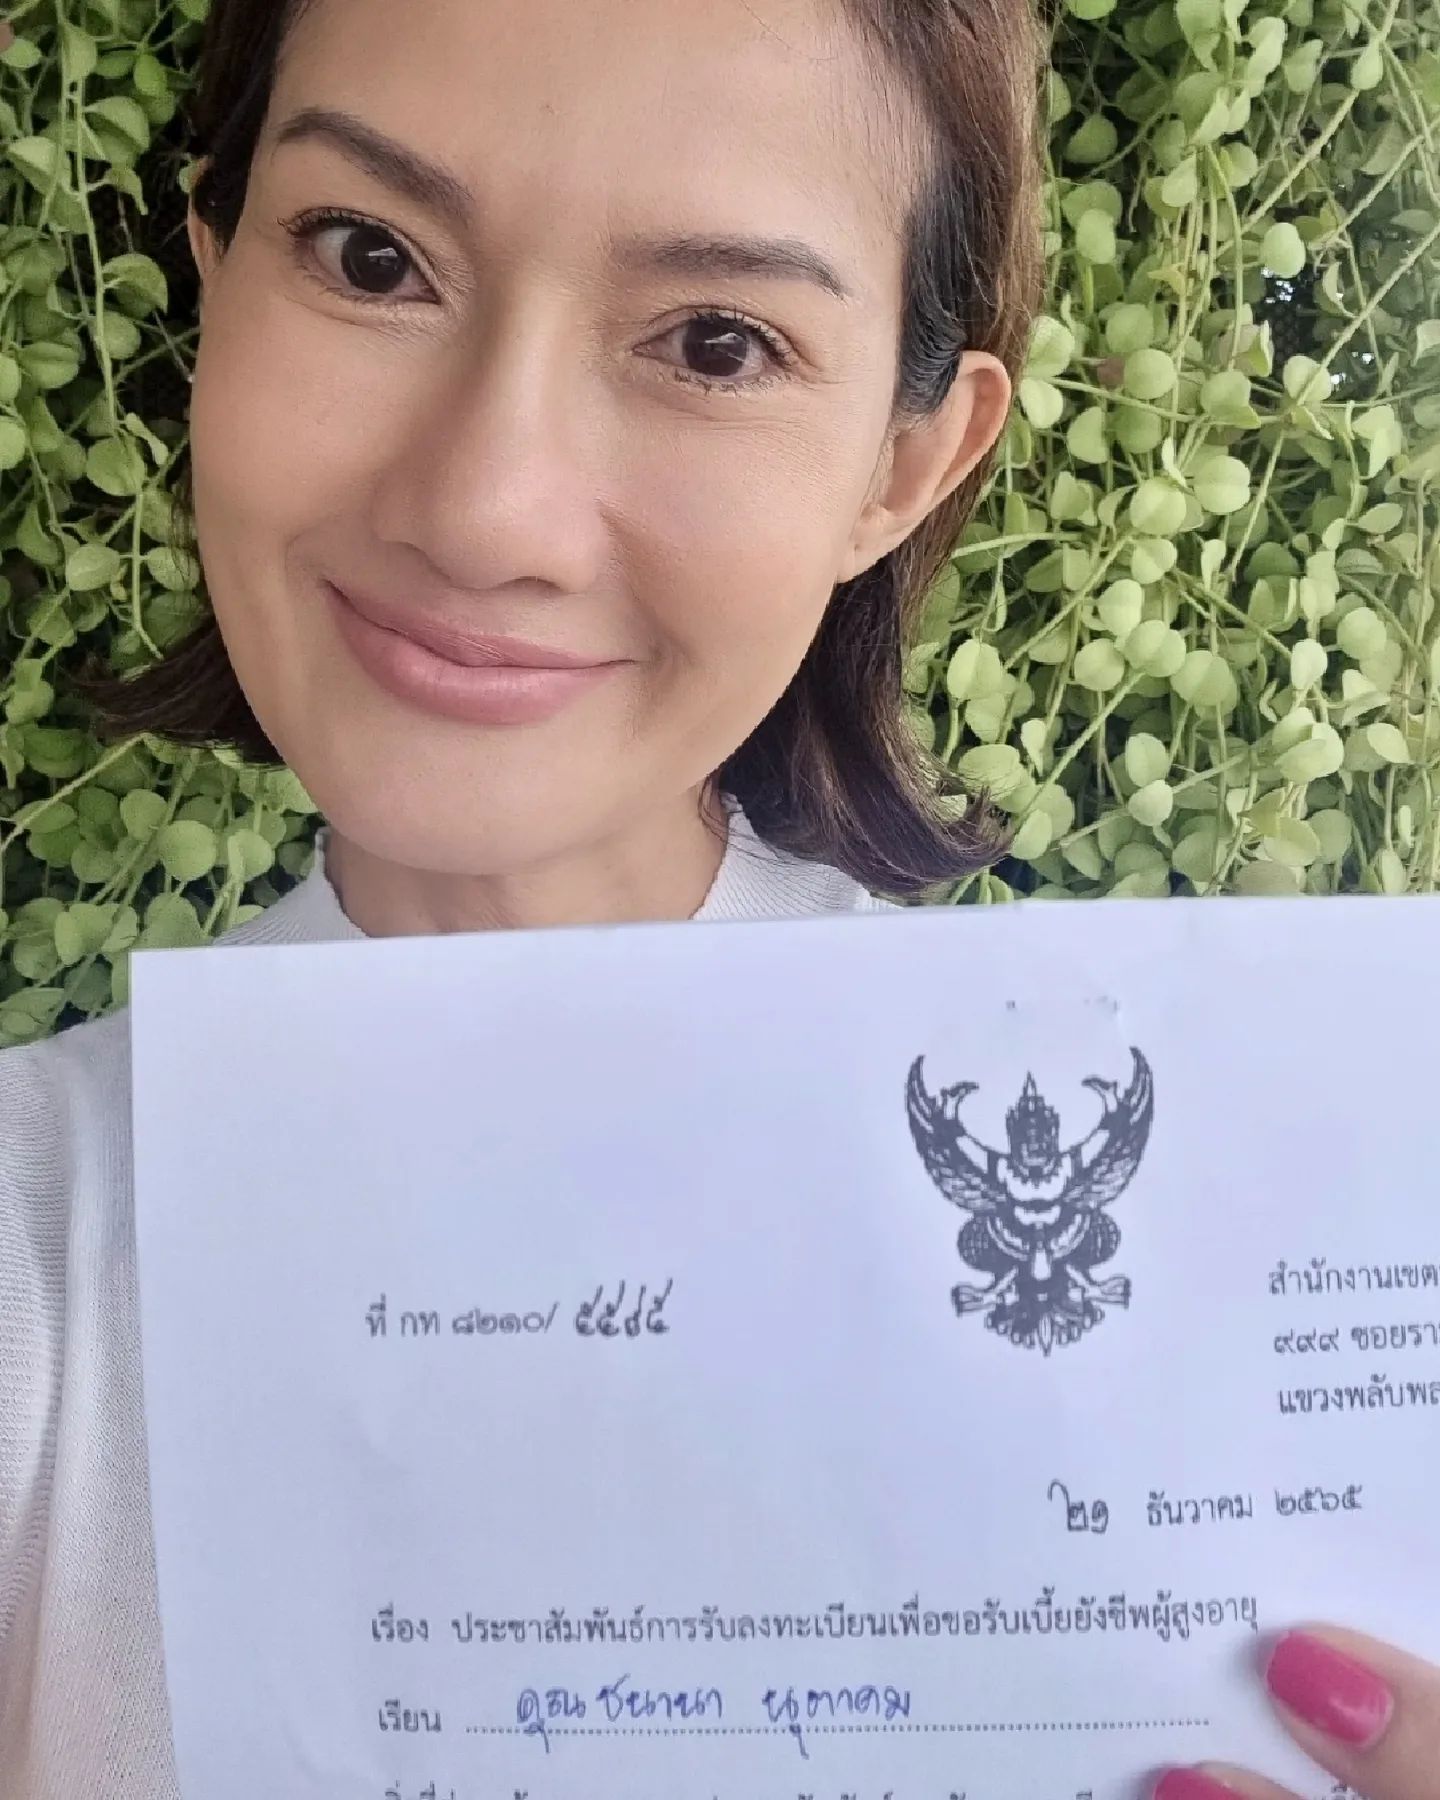 ที่ กท ๘๒๑๐/ ๕๕๙๕
สำนักงานเขต
๙๙๙ ซอยรา
แขวงพลับพล
๒๑ ธันวาคม ๒๕๖๕
เรื่อง ประชาสัมพันธ์การรับลงทะเบียนเพื่อขอรับเบี้ยยังชีพผู้สูงอายุ
เรียน คุณชนานา นุตาคม